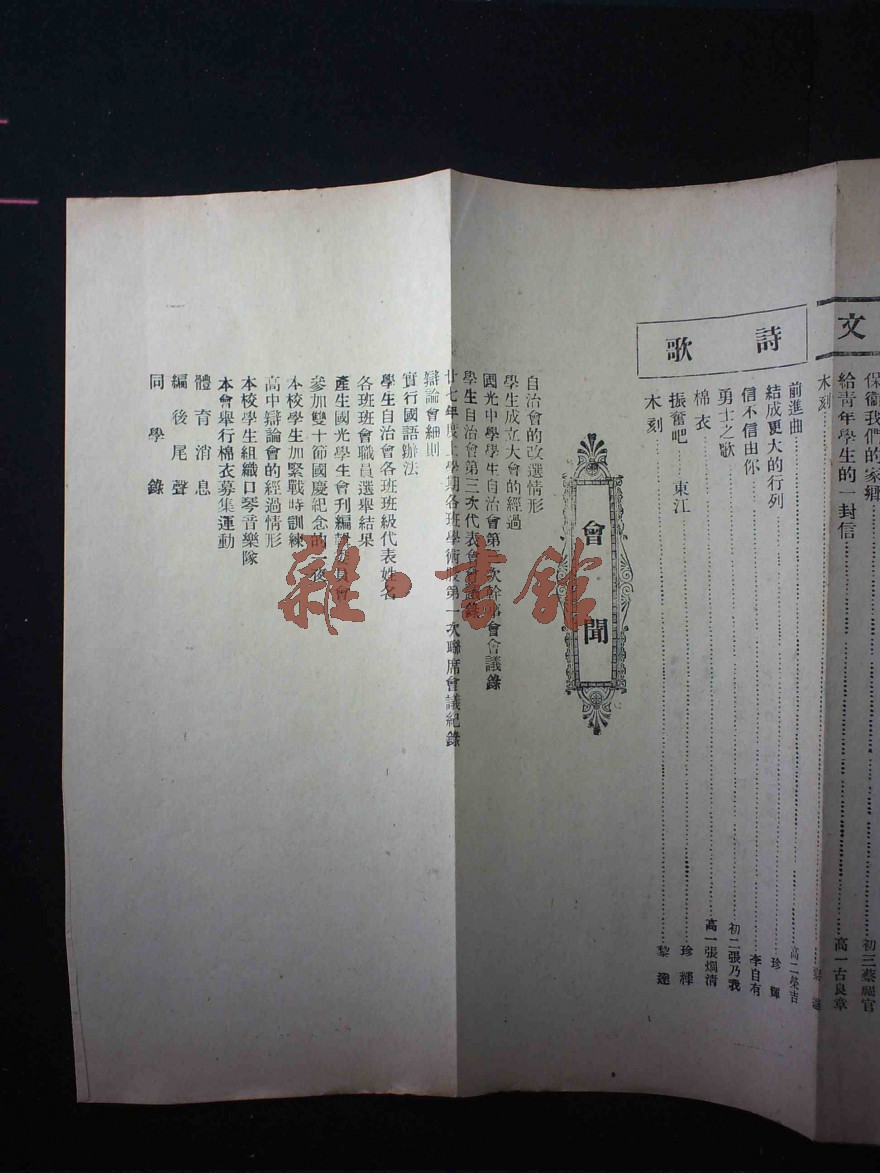 文
保衞我們的家鄉 初三蔡福官
給靑年學生的一封信 高一古良章
木刻 黎遄
詩歌
前進曲 高二榮吉
結成更大的行列 珍輝
信不信由你 李自有
勇士之歌 初二張乃我
棉衣 高一張烱淸
振奮吧 東江 珍輝
木刻 黎遄
會聞
自治會的改選情形
學生成立大會的經過
國光中學學生自治會第一次幹事會會議錄
學生自治會第三次代表會會議錄
廿七年度上學期各班學術股第一次聯席會議紀錄
辯論會細則
實行國語辦法
學生自治會各班班級代表姓名
各班班會職員選舉結果
產生國光學生會刊編輯委員會
參加雙十節國慶紀念的一夜
本校學生加緊戰時訓練
高中辯論會的經過情形
本校學生組織口琴音樂隊
本會舉行棉衣募集運動
體育消息
編後尾聲
同學錄
雜·書館